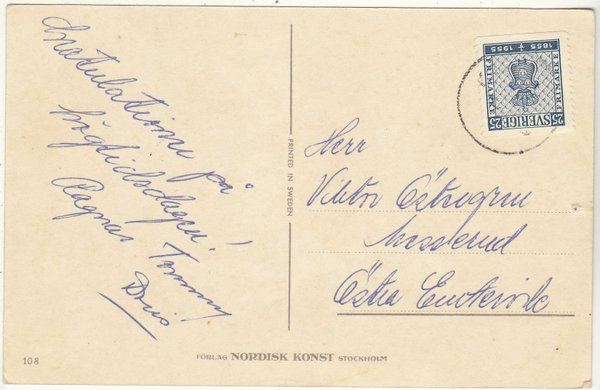 Gratulationer på
högtidsdagen!
Ragnar Tommy
Herr
Viktor
Östra Emtervik
1855 1955
FRIMÄRKE
SVERIGE
25 25
PRINTED IN SWEDEN
108
FÖRLAG NORDISK KONST STOCKHOLM